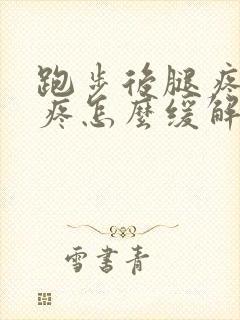 跑步后腿疼
疼怎麼缓解
雪書青